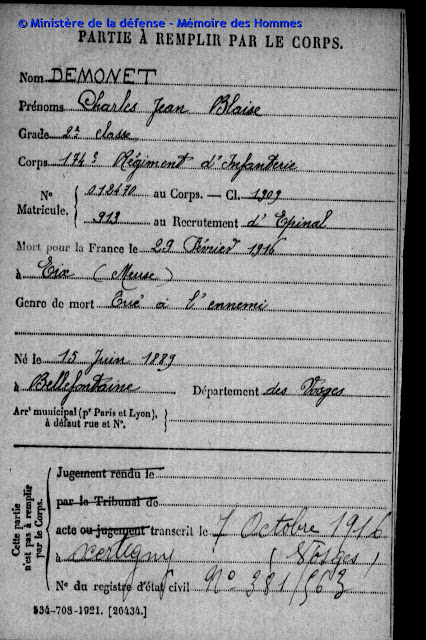 © Ministère de la défense - Mémoire des Hommes
PARTIE À REMPLIR PAR LE CORPS.
Nom DEMONET
Prénoms Charles Jean Blaise
Grade 2e classe
Corps 174e Régiment d'Infanterie
Nº 012470 au Corps. — Cl. 1909
Matricule. 913 au Recrutement d'Epinal
Mort pour la France le 29 Février 1916
à Eix (Meuse)
Genre de mort Tué à l'ennemi
Né le 15 Juin 1889
à Bellefontaine Département des Vosges
Arrt municipal (pr Paris et Lyon),
à défaut rue et Nº.
Cette partie
n'est pas à remplir
par le Corps.
Jugement rendu le
par le Tribunal de
acte ou jugement transcrit le 7 Octobre 1916
à Xertigny (Vosges)
Nº du registre d'état civil Nº 381/563
534-708-1921. [26434.]